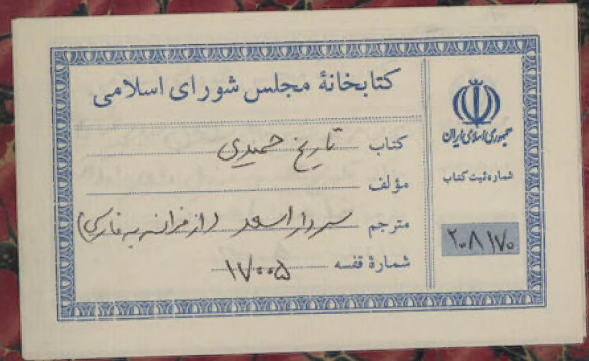 کتابخانهٔ مجلس شورای اسلامی
کتاب تاریخ حمیدی
مؤلف
مترجم سردار اسعد (از فرانسه به فارسی)
شمارهٔ قفسه ۱۷۰۰۵
جمهوری اسلامی ایران
شماره ثبت کتاب
۲۰۸۱۷۰